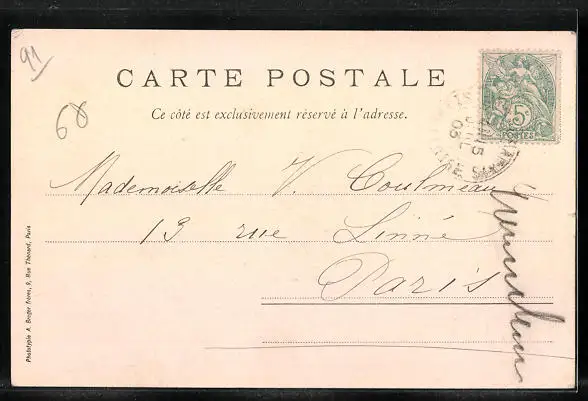 91
68
CARTE POSTALE
Ce côté est exclusivement réservé à l'adresse.
5c
POSTES
15
03
Mademoiselle V. Coulmeau
13 rue Linné
Paris
Phototypie A. Breger frères, 9, Rue Thénard, Paris